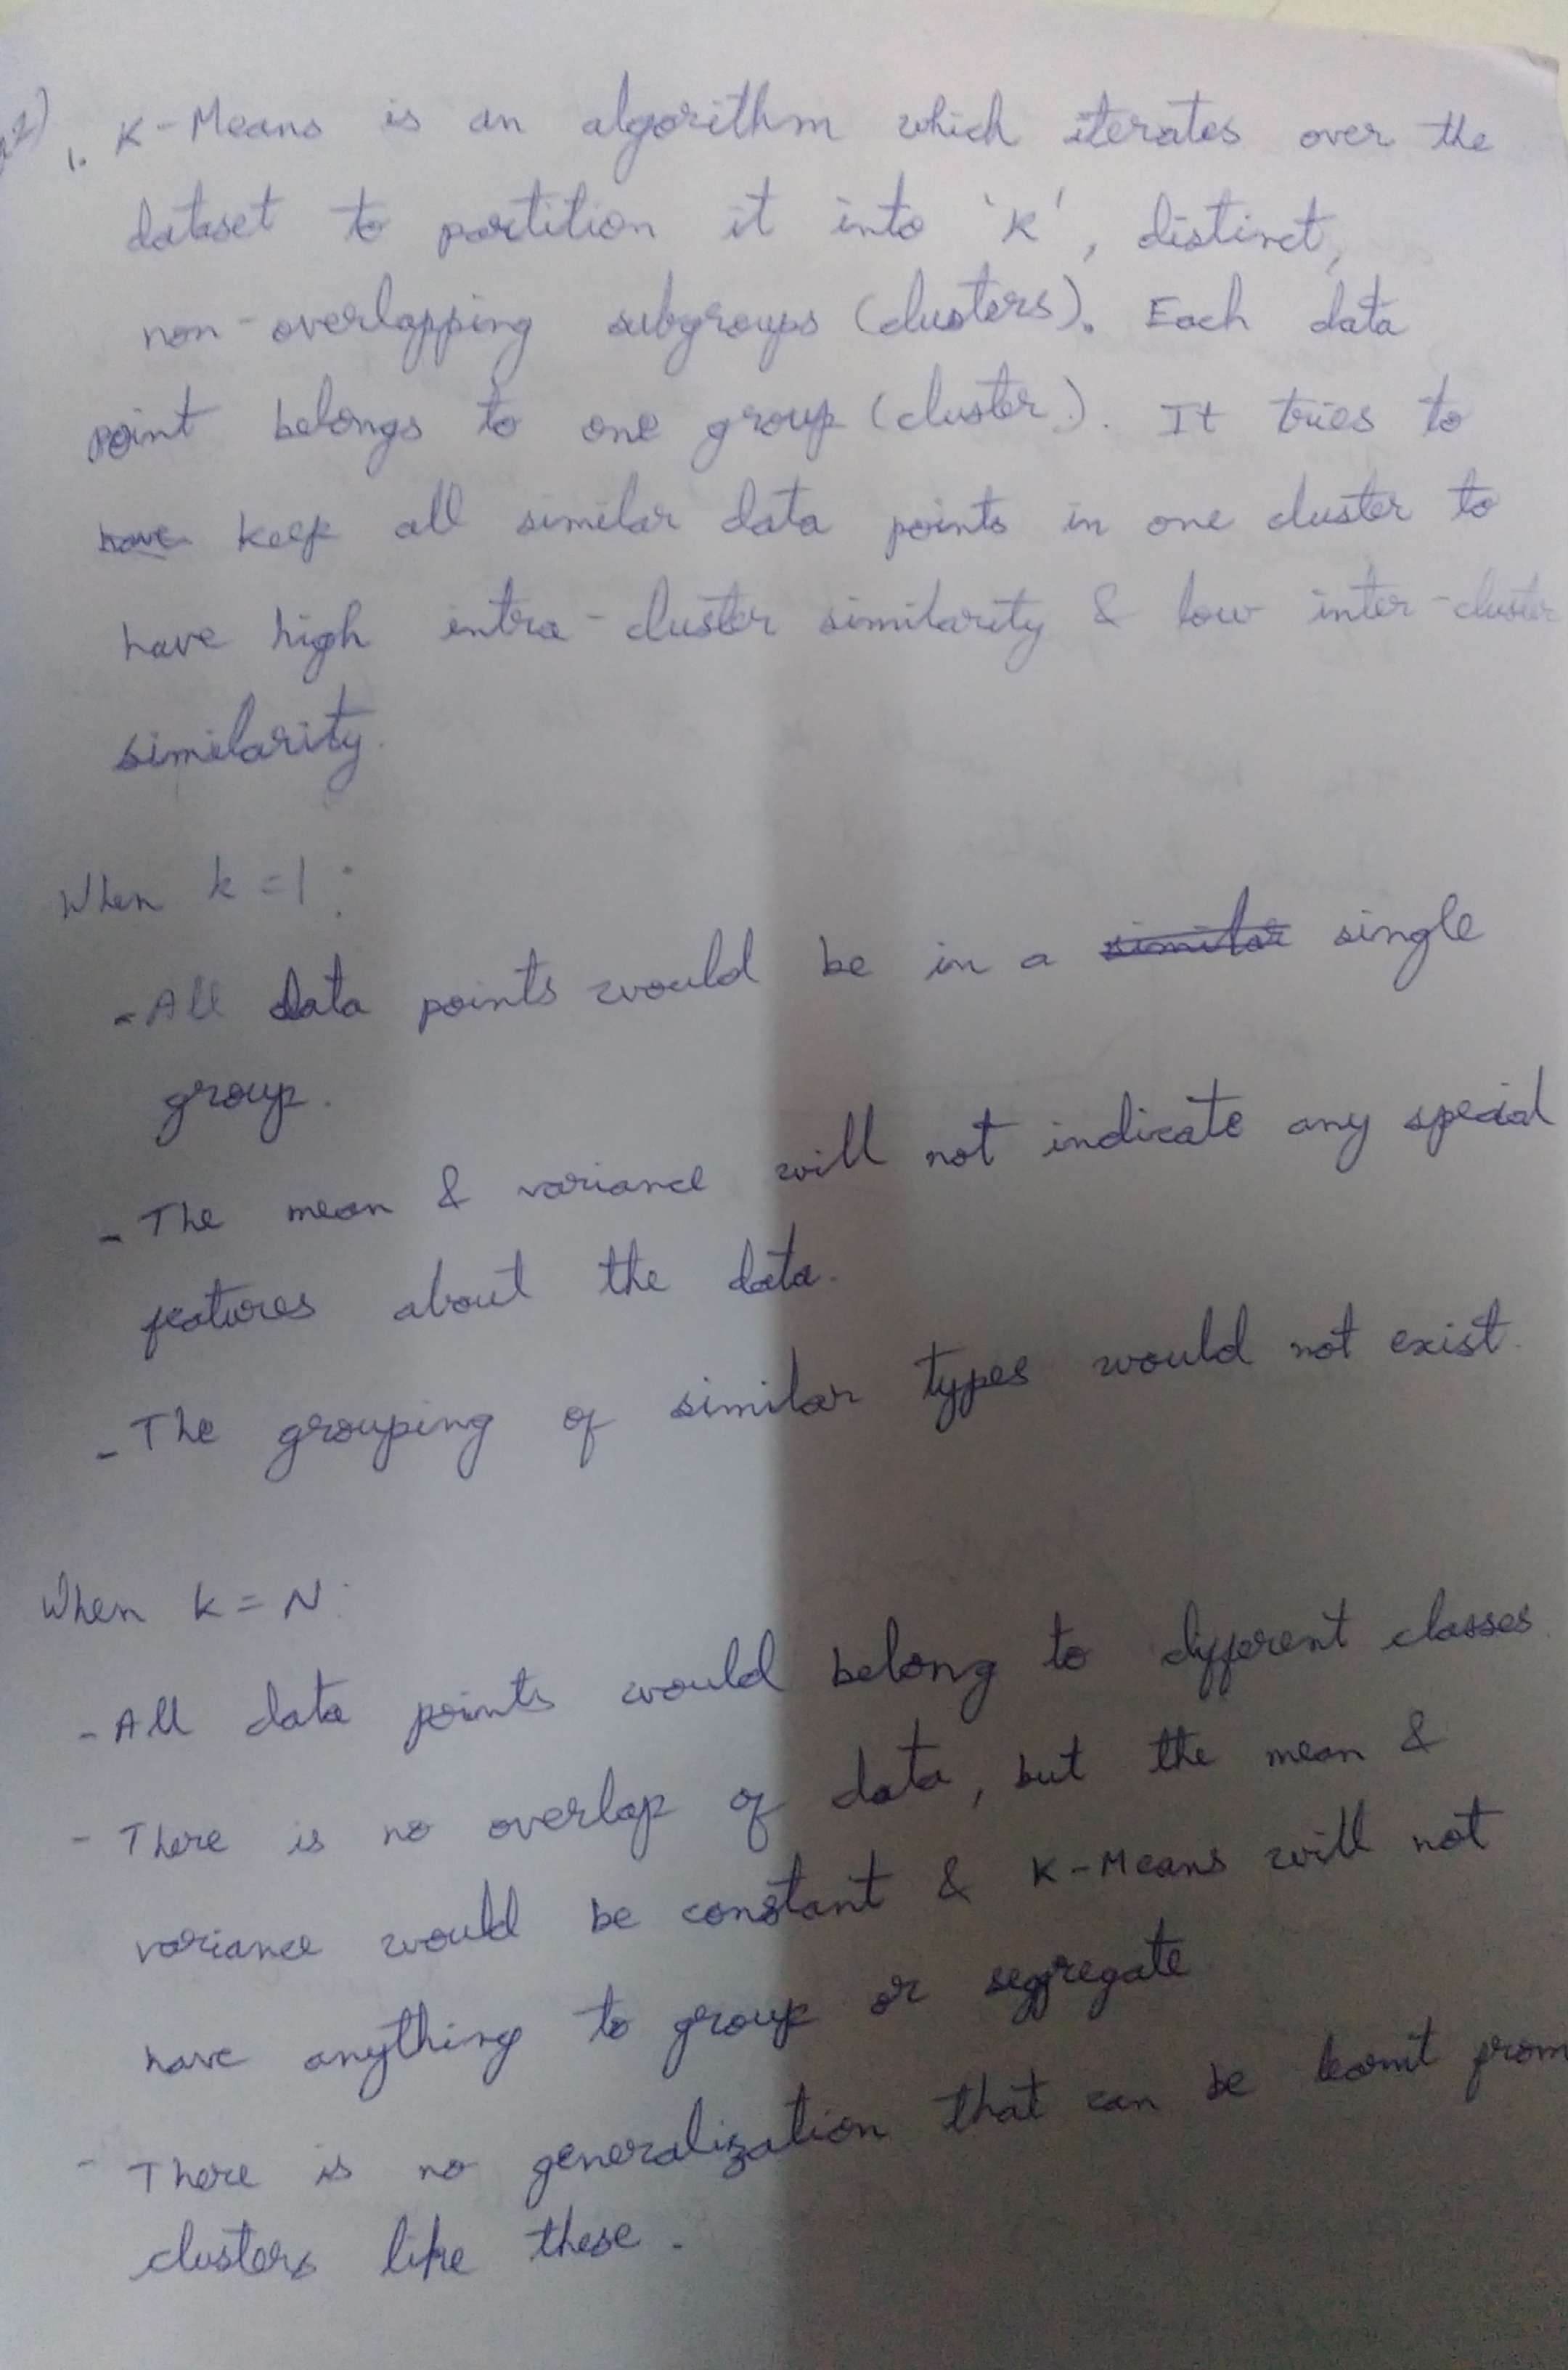 2)
1. K-Means is an algorithm which iterates over the
dataset to partition it into 'K', distinct,
non-overlapping subgroups (clusters). Each data
point belongs to one group (cluster). It tries to
have keep all similar data points in one cluster to
have high intra-cluster similarity & low inter-cluster
similarity.
When k=1:
- All data points would be in a similar single
group.
- The mean & variance will not indicate any special
features about the data.
- The grouping of similar types would not exist.
When k = N:
- All data points would belong to different classes.
- There is no overlap of data, but the mean &
variance would be constant & K-Means will not
have anything to group or seggregate
- There is no generalization that can be learnt from
clusters like these.